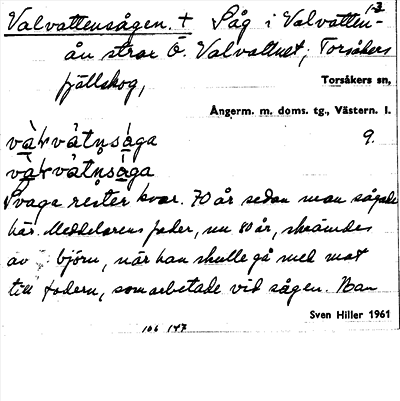 Valvattensågen. + Såg i Valvatten- 1-3
ån strax Ö. Valvattnet, Torsåkers
fjällskog,
Torsåkers sn,
Ångerm. m. doms. tg., Västern. l.
9.
Svaga rester kvar. 70 år sedan man sågade
här. Meddelarens fader, nu 80 år, skrämdes
av björn, när han skulle gå med mat
till fadern, som arbetade vid sågen. Han
Sven Hiller 1961
106 147